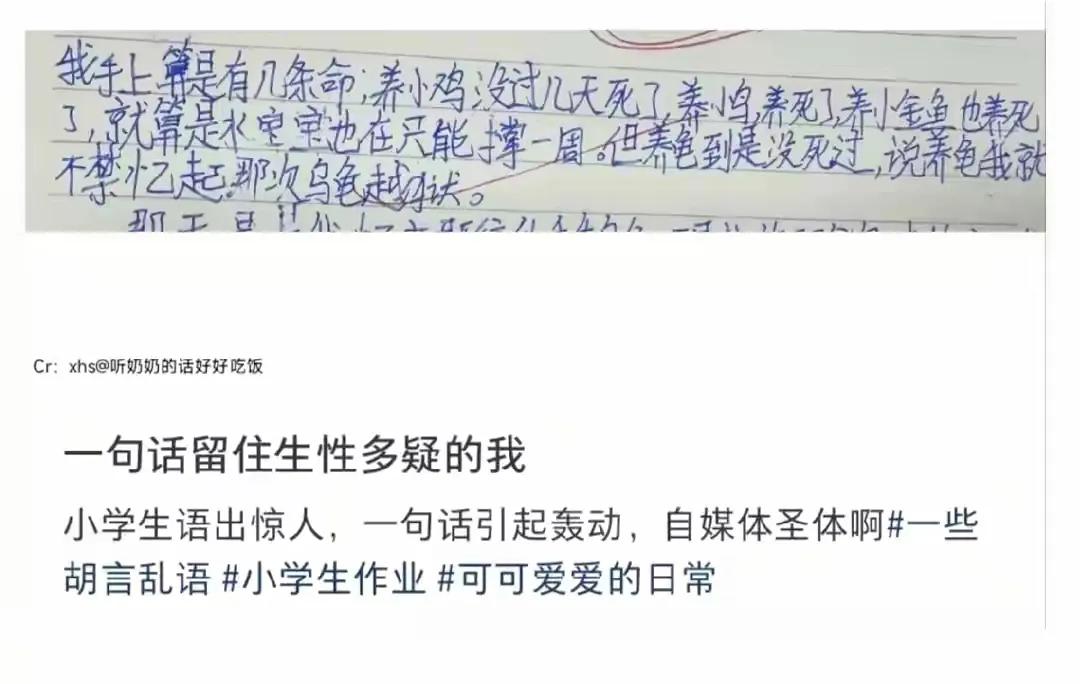 我手上算是有几条命,养小鸡没过几天死了,养小鸟,养死了,养小金鱼也养死
了,就算是水宝宝也在只能撑一周。但养龟到是没死过,说养龟我就
不禁忆起.那次乌龟越狱。
Cr：xhs@听奶奶的话好好吃饭
一句话留住生性多疑的我
小学生语出惊人，一句话引起轰动，自媒体圣体啊#一些
胡言乱语 #小学生作业 #可可爱爱的日常